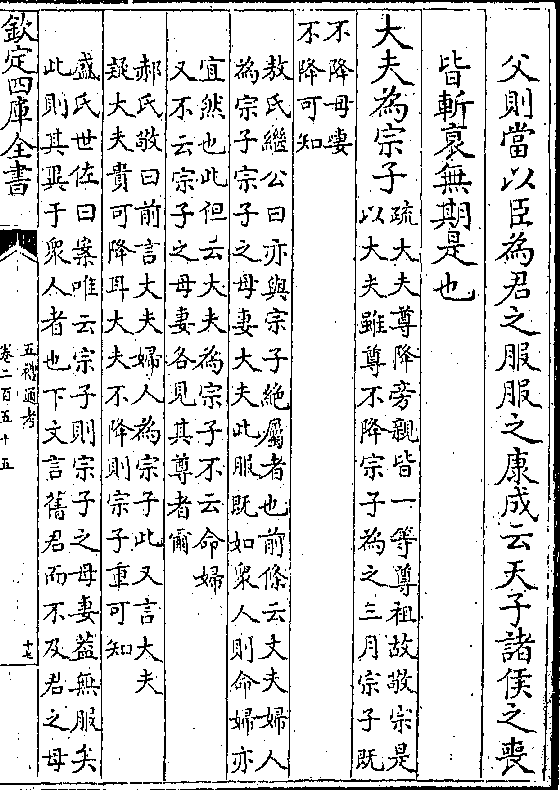 父則當以臣為君之服服之康成云天子諸侯之喪
皆斬衰無期是也
大夫為宗子
疏大夫尊降旁親皆一等尊祖故敬宗是
以大夫雖尊不降宗子為之三月宗子既
不降母妻
不降可知
敖氏繼公曰亦與宗子絶屬者也前條云丈夫婦人
為宗子宗子之母妻大夫此服既如衆人則命婦亦
宜然也此但云大夫為宗子不云命婦
又不云宗子之母妻各見其尊者爾
郝氏敬曰前言丈夫婦人為宗子此又言大夫
疑大夫貴可降耳大夫不降則宗子重可知
盛氏世佐曰案唯云宗子則宗子之母妻蓋無服矣
此則其異于衆人者也下文言舊君而不及君之母
欽定四庫全書
五禮通考
卷二百五十五
十七